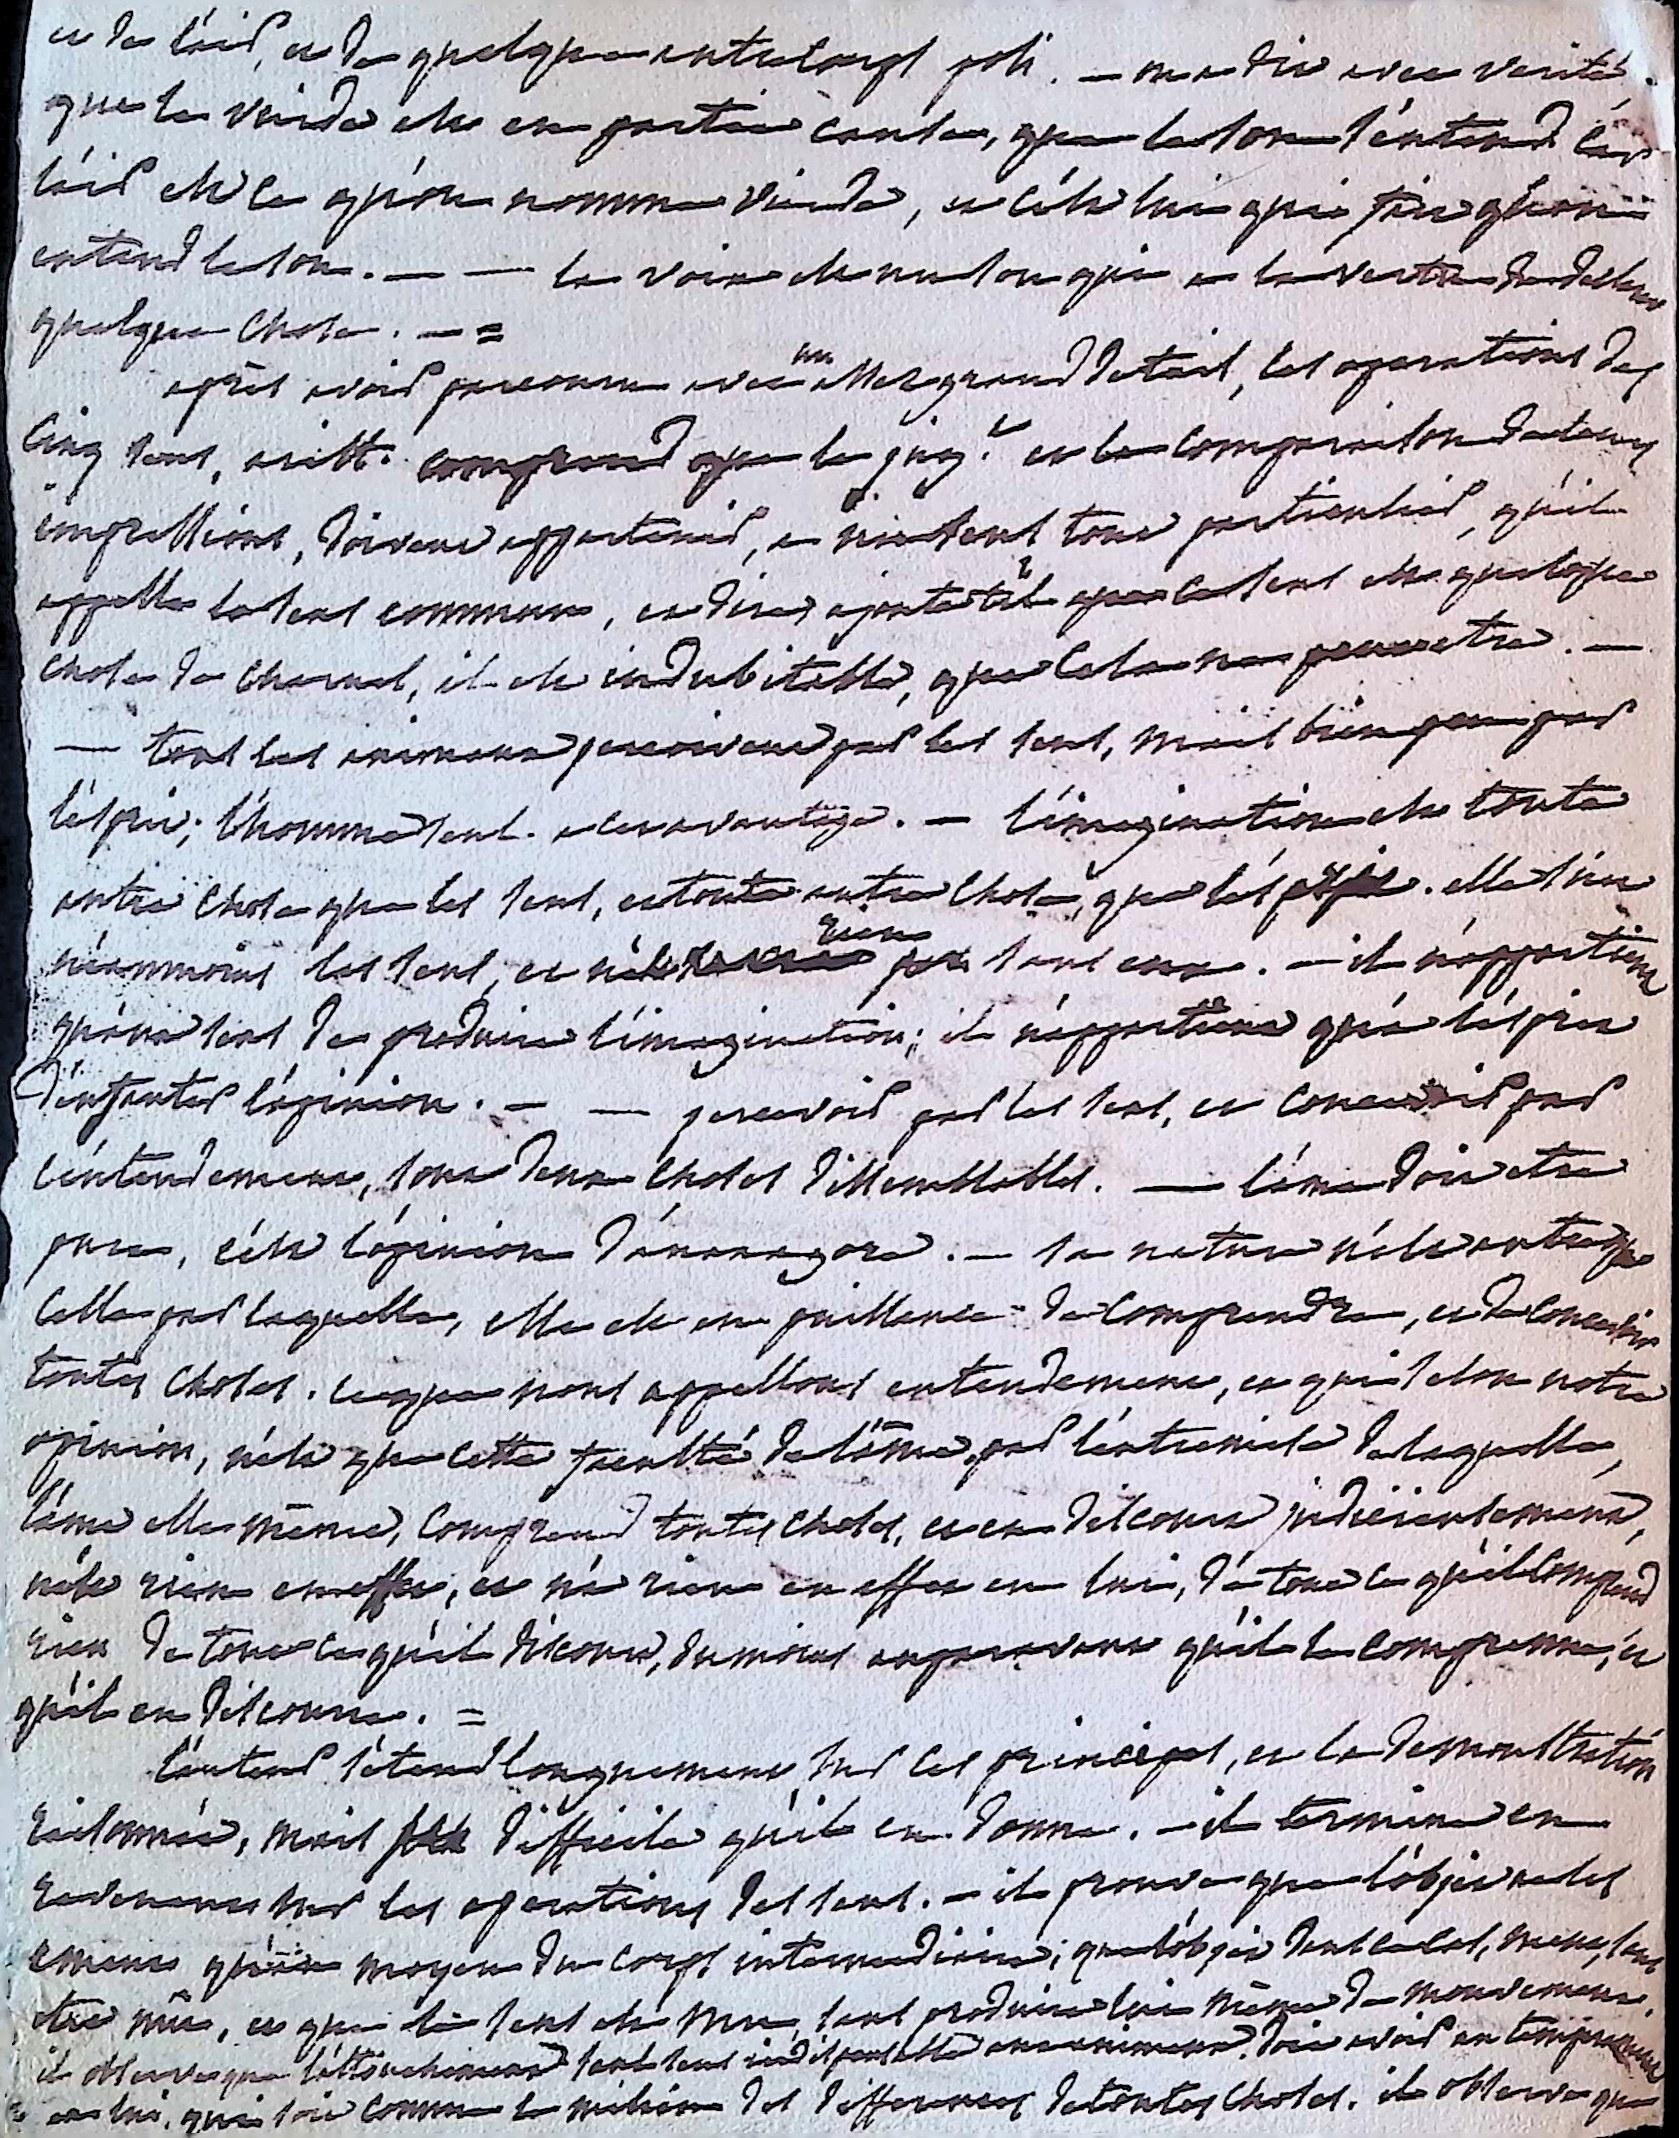 et de l'air, et de quelque autre corps poli. — on a dit avec verité,
que le vuide est en partie cause, que le son s'entend car
l'air est ce qu'on nomme vuide, et c'est lui qui fait qu'on
entend le son. — — la voix est un son qui a la vertu de
quelque chose. — =
après avoir parcouru avec un assez grand detail, les operations des
cinq sens, arist. comprend que le jug.t et la comparaison de
impressions, doivent appartenir, a un sens tout particulier, qu'il
appelle le sens commun, et dire, ajoute t'il que ce sens est quelque
chose de charnel, il est indubitable, que cela ne peut etre. —
— tous les animaux percoivent par les sens, mais bien peu par
l'esprit; l'homme seul a cet avantage. — l'imagination est toute
autre chose que les sens, et toute autre chose, que l'esprit. elle suit
néanmoins les sens, et n'est rien sans eux. — il n'appartient
qu'aux sens de produire l'imagination; il n'appartient qu'a l'esprit
d'enfanter l'opinion. — — percevoir par les sens, et concevoir par
l'entendement, sont deux choses dissemblables. — l'ame doit etre
pure, c'est l'opinion d'anaxagore. — sa nature n'est autre que
celle par laquelle, elle est en puissance de comprendre, et de concevoir
toutes choses. ce que nous appellons entendement, et qui selon notre
opinion, n'est que cette faculté de l'âme, par l'entremise de laquelle,
l'ame elle même, comprend toutes choses, et en discourt judicieusement,
n'est rien en effet, et n'a rien en effet en lui, de tout ce qu'il comprend
rien de tout ce qu'il discourt, du moins auparavant qu'il le comprenne, et
qu'il en discoure. =
l'auteur s'étend longuement, sur ces principes, et la demonstration
raisonnée, mais difficile qu'il en donne. — il termine en
revenant sur les operations des sens. — il prouve que l'objet
qu'au moyen du corps intermediaire; que l'objet sans
etre mû, et que le sens est mu, sans produire lui même de mouvement.
il observe que l'attouchement seul sens indispensable doit avoir un
en lui, qui soit comme le milieu des differences de toutes choses. il observe que